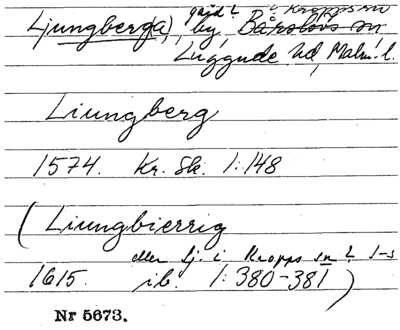 i Kropps sn
Ljungberg(a), by, Bårslövs sn
Luggude hd, Malm. l.
Liungberg
1574. Kr. Sk. 1:148
(Liungbierrig
eller Lj. i Kropps sn? 1-s
1615. ib. 1:380-381)
Nr 5673.